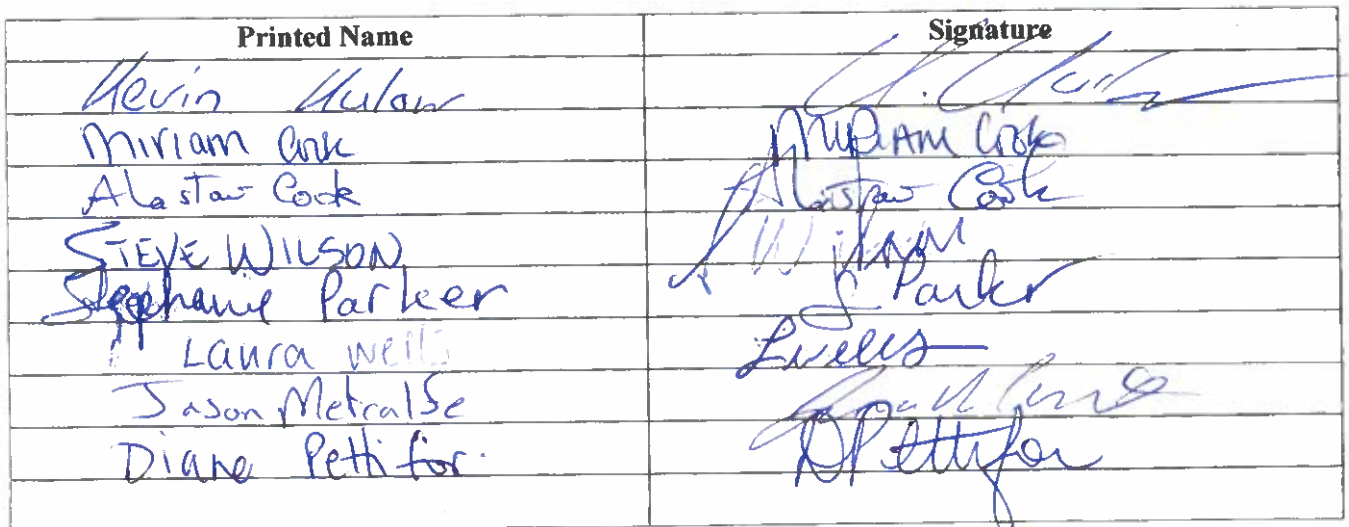 Printed Name Signature
Kevin
Miriam Cook Miriam Cook
Alastair Cook Alastair Cook
STEVE WILSON S Wilson
Stephanie Parker S Parker
Laura Wells L Wells
Jason Metcalfe
Diane Pettifor. D Pettifor